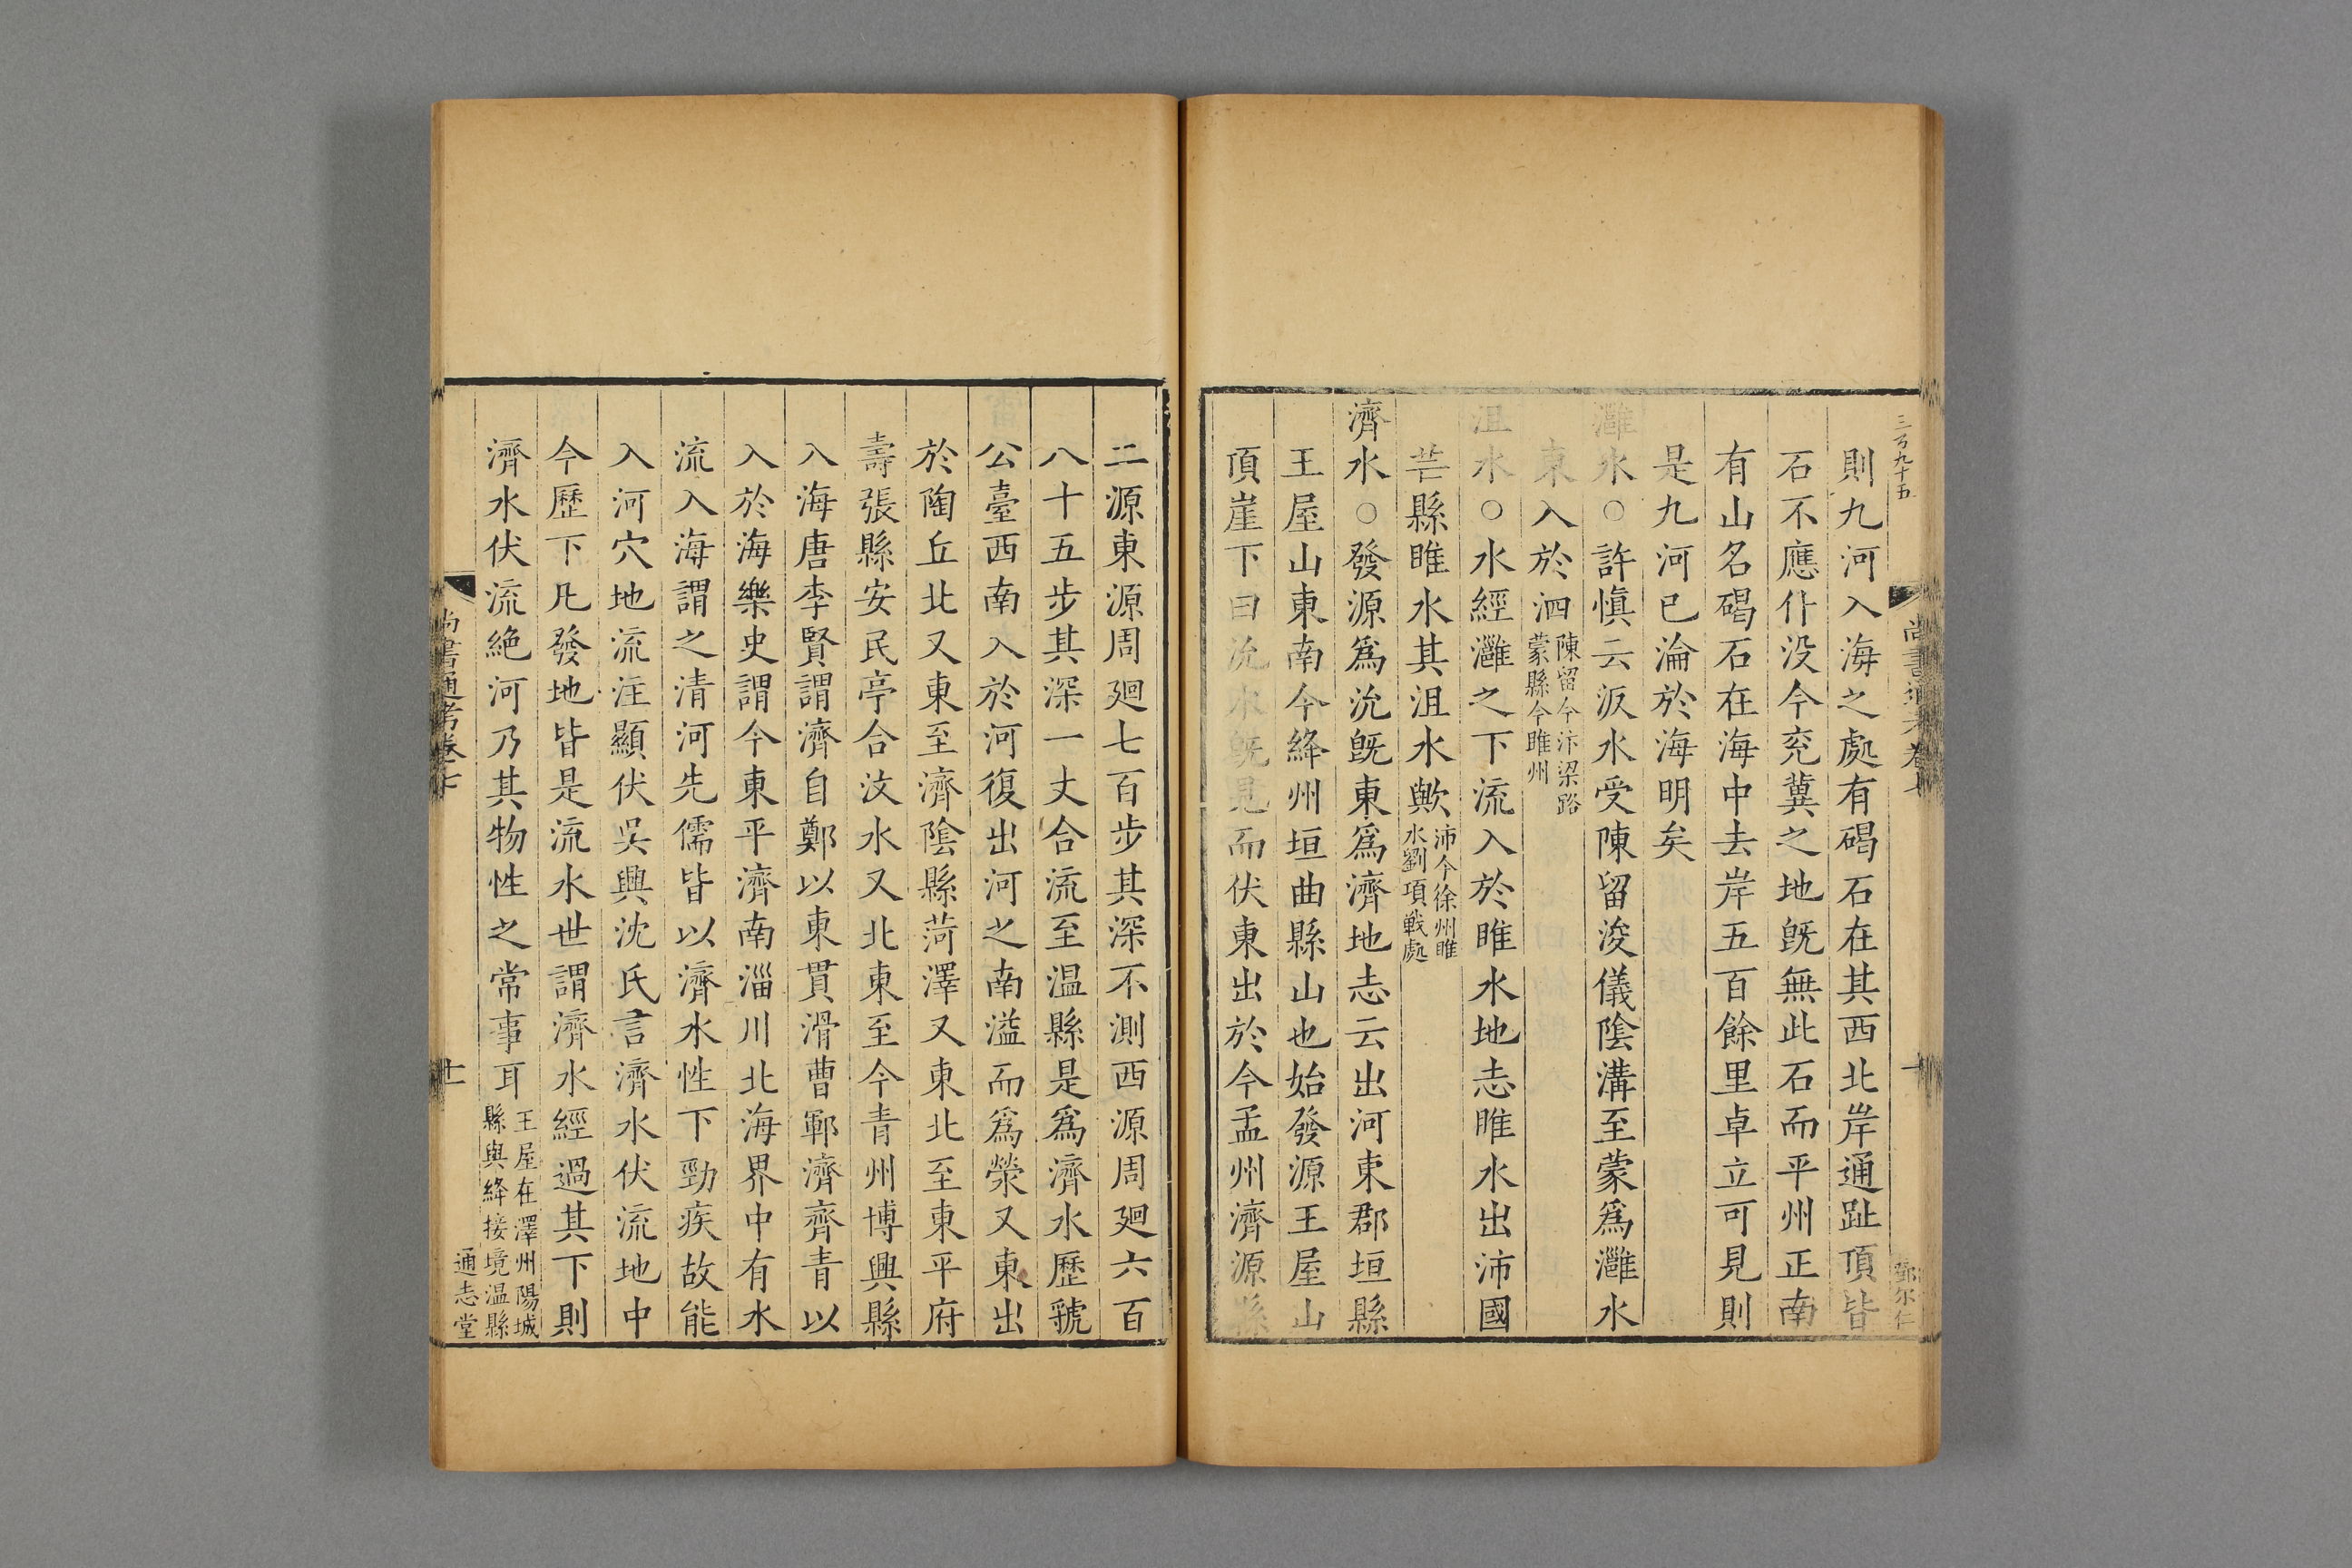 三百九十五
尚書通考卷七
十
鄧尔仁
則九河入海之處有碣石在其西北岸通趾頂皆
石不應仆没今兖冀之地旣無此石而平州正南
有山名碣石在海中去岸五百餘里卓立可見則
是九河已淪於海明矣
灉水○許慎云汳水受陳留浚儀陰溝至蒙爲灉水
東入於泗陳留今汴梁路蒙縣今睢州
沮水○水經灉之下流入於睢水地志睢水出沛國
芒縣睢水其沮水歟沛今徐州睢水劉項戰處
濟水○發源爲沇旣東爲濟地志云出河東郡垣縣
王屋山東南今絳州垣曲縣山也始發源王屋山
頂崖下曰沇水旣見而伏東出於今孟州濟源縣
二源東源周廻七百步其深不測西源周廻六百
八十五步其深一丈合流至温縣是爲濟水歷虢
公臺西南入於河復出河之南溢而爲滎又東出
於陶丘北又東至濟陰縣菏澤又東北至東平府
壽張縣安民亭合汶水又北東至今青州博興縣
入海唐李賢謂濟自鄭以東貫滑曹鄆濟齊青以
入於海樂史謂今東平濟南淄川北海界中有水
流入海謂之清河先儒皆以濟水性下勁疾故能
入河穴地流注顯伏吳興沈氏言濟水伏流地中
今歷下凡發地皆是流水世謂濟水經過其下則
濟水伏流絶河乃其物性之常事耳王屋在澤州陽城縣與絳接境温縣
尚書通考卷七
十一
通志堂